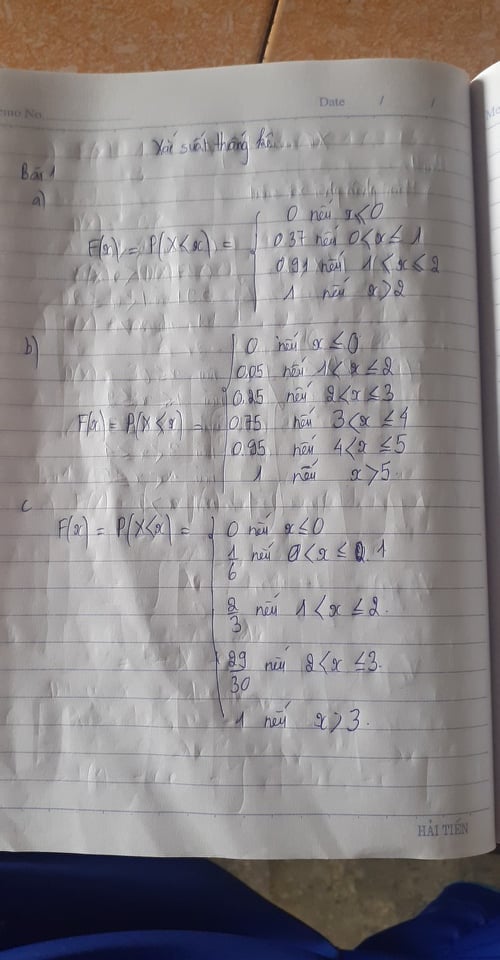 emo No.
Date / /
Xác suất thống kê
Bài 1
a)
F(x) = P(X<x) =
0 nếu x≤0
0.37 nếu 0<x≤1
0.91 nếu 1<x≤2
1 nếu x>2
b)
F(x) = P(X<x) =
0 nếu x≤0
0.05 nếu 1<x≤2
0.25 nếu 2<x≤3
0.75 nếu 3<x≤4
0.95 nếu 4<x≤5
1 nếu x>5.
c
F(x) = P(X<x) =
0 nếu x≤0
1/6 nếu 0<x≤ 1
2/3 nếu 1<x≤2.
29/30 nếu 2<x≤3.
1 nếu x>3.
HẢI TIẾN